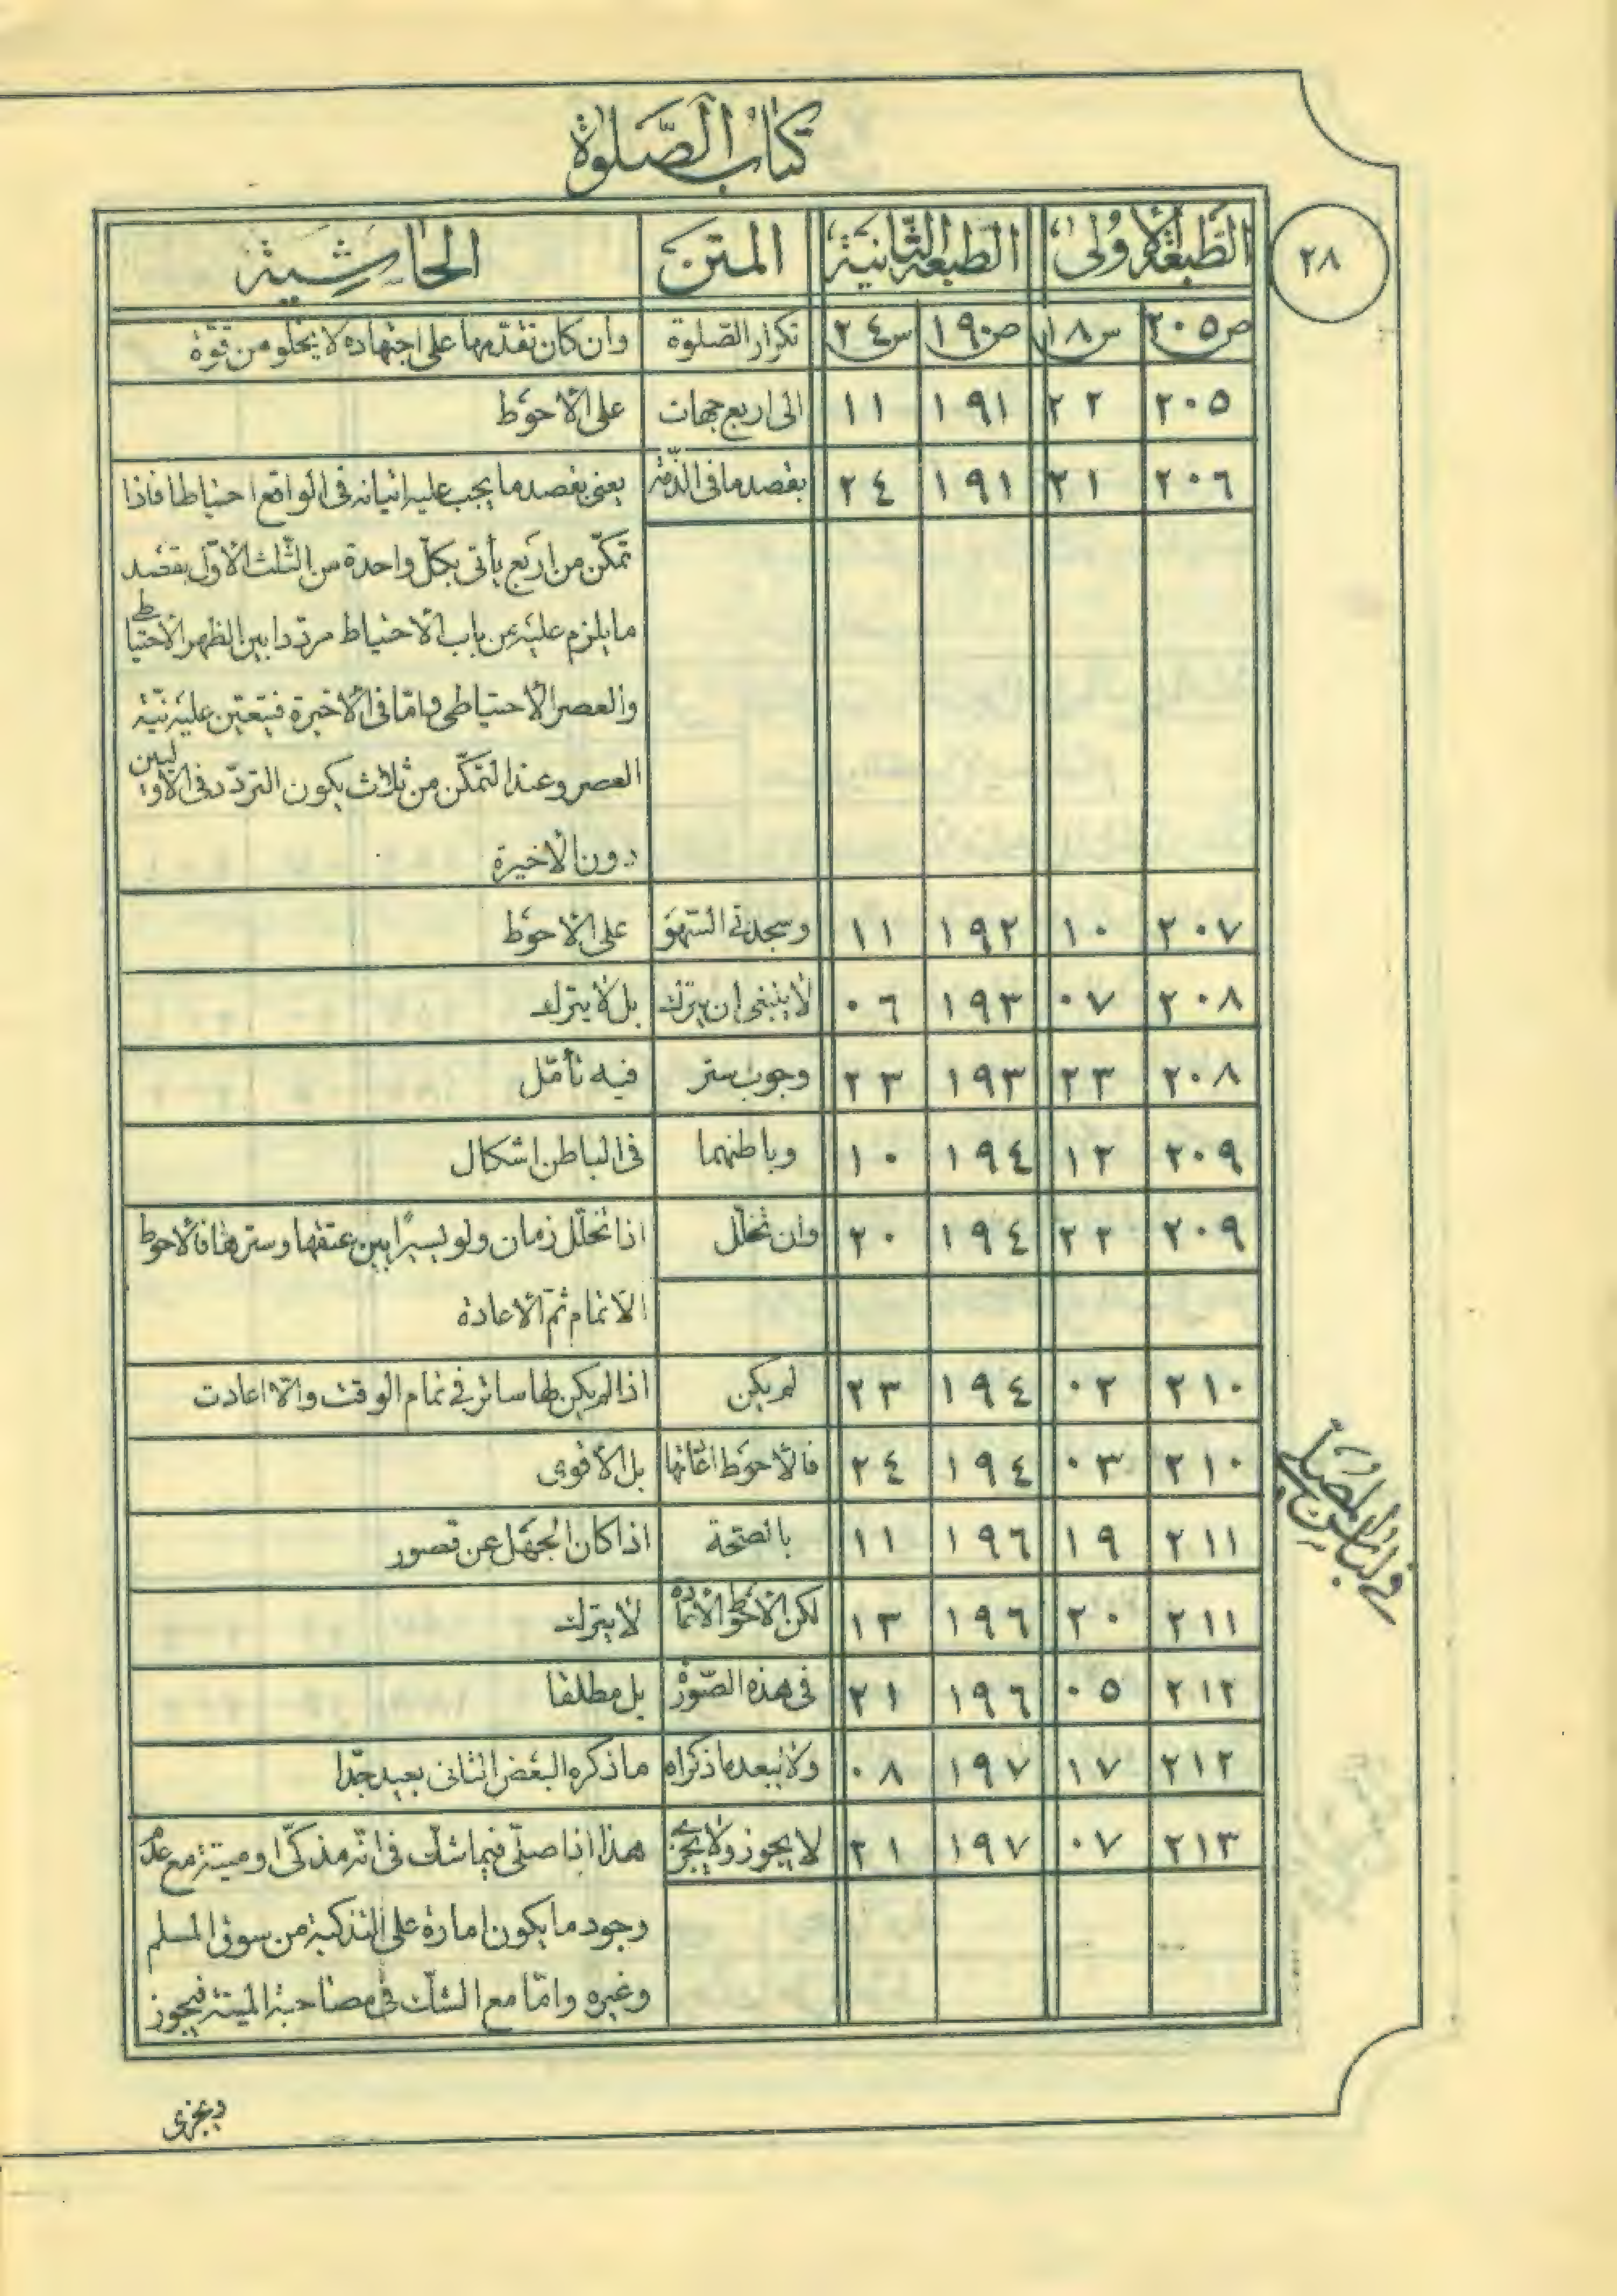 كتاب الصّلوة
٢٨
الطّبعة الأولى الطّبعة الثّانية المتن الحاشية
ص٢٠٥ س١٨ ص١٩٠ س٢٤ تكرار الصّلوة وان كان تقدّمها على اجتهاده لا يخلو من قوّة
٢٠٥ ٢٢ ١٩١ ١١ الى اربع جهات على الأحوط
٢٠٦ ٢١ ١٩١ ٢٤ بقصد ما فى الذّمّة يعنى بقصد ما يجب عليه اتيانه فى الواقع احتياطا فاذا
تمكّن من اربع يأتى بكلّ واحدة من الثّلث الأوّل بقصد
ما يلزم عليه من باب الأحتياط مردّدا بين الظهر الأحتياطى
والعصر الأحتياطى وامّا فى الأخيرة فيتعيّن عليه نيّة
العصر وعند التمكّن من ثلاث يكون التردّد فى الأوليين
دون الأخيرة
٢٠٧ ١٠ ١٩٢ ١١ وسجدتى السّهو على الأحوط
٢٠٨ ٠٧ ١٩٣ ٠٦ لا ينبغى ان يترك بل لا يترك
٢٠٨ ٢٣ ١٩٣ ٢٣ وجوب ستر فيه تأمّل
٢٠٩ ١٢ ١٩٤ ١٠ وباطنهما فى الباطن اشكال
٢٠٩ ٢٢ ١٩٤ ٢٠ وان تخلّل اذا تخلّل زمان ولو يسيرًا بين عتقها وسترها فالأحوط
الأتمام ثمّ الأعادة
٢١٠ ٠٢ ١٩٤ ٢٣ لم يكن اذا لم يكن لها ساتر فى تمام الوقت والّا اعادت
٢١٠ ٠٣ ١٩٤ ٢٤ فالأحوط الحاقها بل الأقوى
٢١١ ١٩ ١٩٦ ١١ بالصّحة اذا كان الجهل عن قصور
٢١١ ٢٠ ١٩٦ ١٣ لكن الأحوط لا يترك
٢١٢ ٠٥ ١٩٦ ٢١ فى هذه الصّورة بل مطلقا
٢١٢ ١٧ ١٩٧ ٠٨ ولا يبعد ما ذكراه ما ذكره البعض الثانى بعيد جدّا
٢١٣ ٠٧ ١٩٧ ٢١ لا يجوز ولا يجزى هذا اذا صلّى فيما شكّ فى انّه مذكّى او ميتة مع عدم
وجود ما يكون امارة على التذكية من سوق المسلم
وغيره وامّا مع الشكّ فى مصاحبة الميتة فيجوز
ويجزى
فى لباس المصلّى